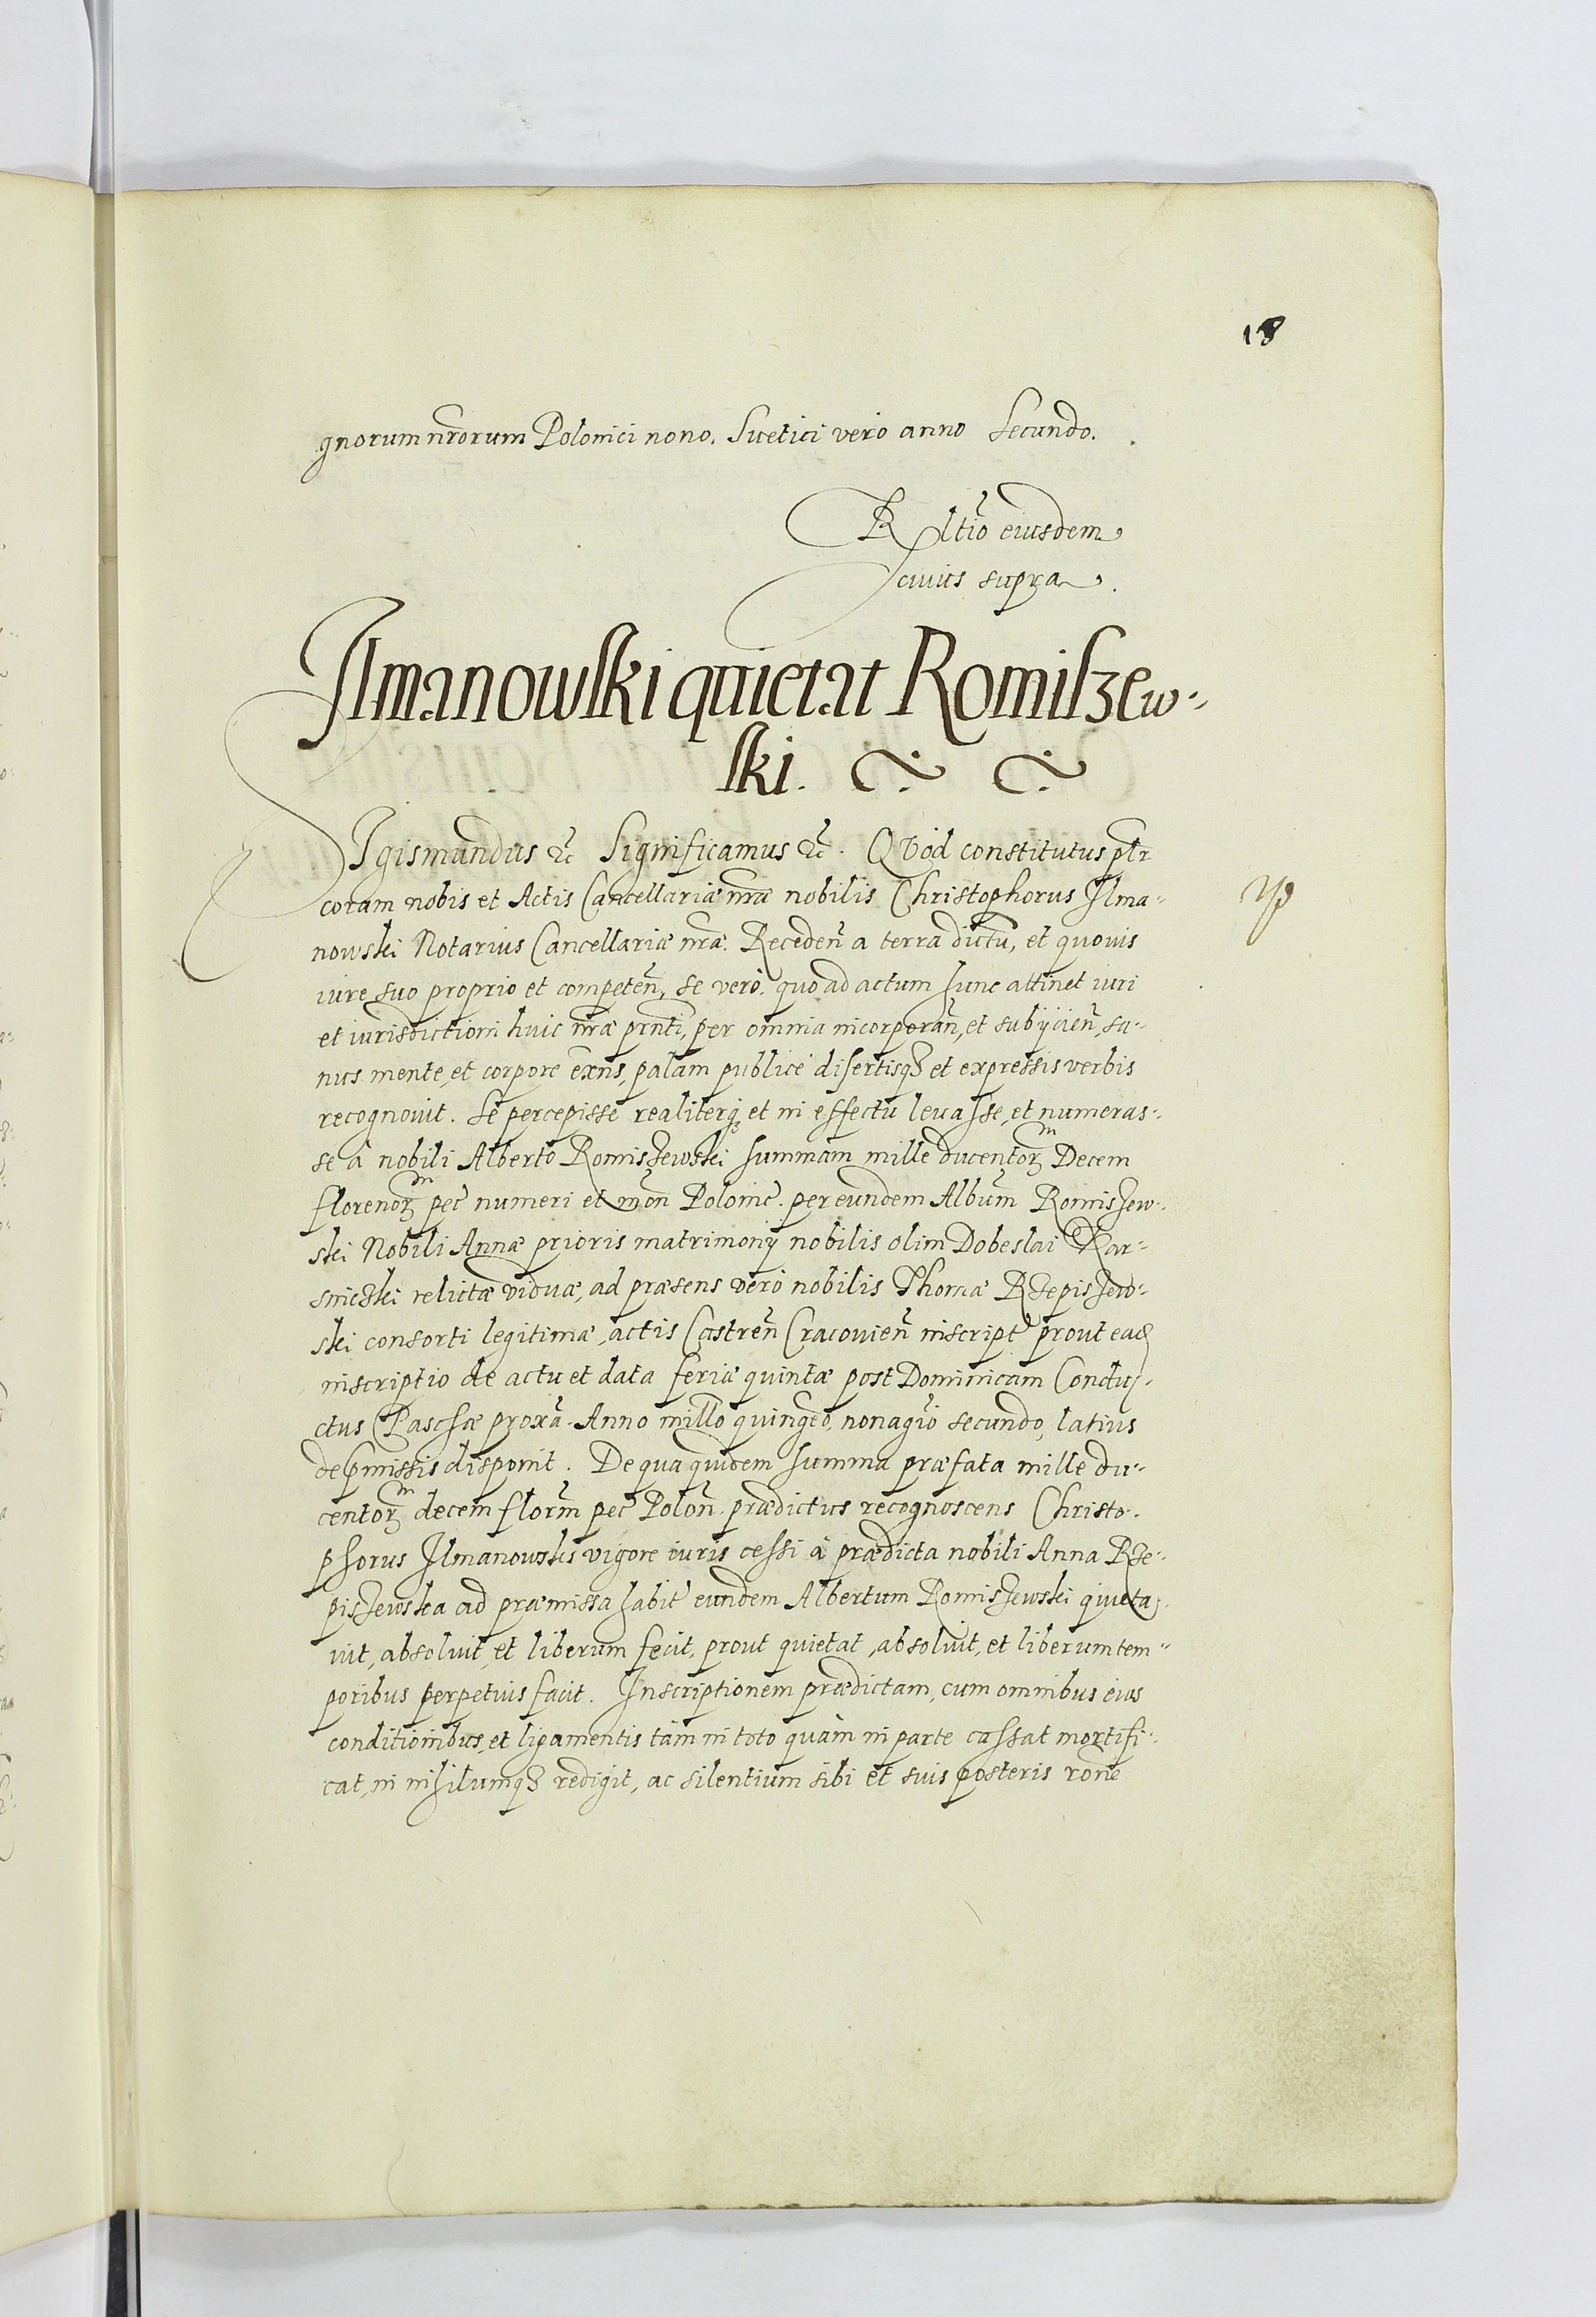 18
gnorum nrorum Polonici nono. Suetici vero anno Secundo.
Rltio eiusdem
cuius supra.
Ilmanowski quietat Romiszew-
ski.
Sigismundus &c Significamus &c. Quod constitutus pltr
coram nobis et Actis Cancellariæ nræ nobilis Christophorus Ilma-
nowski Notarius Cancellariæ nræ. Receden a terra dictu, et quovis
iure suo proprio et competen, se vero, quo ad actum hunc attinet iuri
et iurisdictioni huic nræ prnti, per omnia incorporan, et subijcien, sa-
nus mente, et corpore exns, palam publice disertisq3 et expressis verbis
recognovit. Se percepisse realiterq3 et in effectu levasse, et numeras-
se à nobili Alberto Romiszewski summam mille ducentor m Decem
florenor m pec numeri et mon Polonic. per eundem Album Romiszew-
ski Nobili Annæ prioris matrimonij nobilis olim Dobeslai Kar-
sniczki relictæ viduæ, ad præsens vero nobilis Thomæ Rzepiszew-
ski consorti legitimæ, actis Castren Cracovien inscript prout ead
inscriptio de actu et data feriæ quintæ post Dominicam Conductus-
ctus Paschæ proxa. Anno millo quingeo, nonagio secundo, latius
de pmissis disponit. De qua quidem summa præfata mille du-
centor m decem florm pec Polon. prædictus recognoscens Christo-
phorus Ilmanowski vigore iuris cessi à prædicta nobili Anna Rze-
piszewska ad præmissa habit eundem Albertum Romiszewski quieta-
vit, absolvit, et liberum fecit, prout quietat, absolvit, et liberum tem-
poribus perpetuis facit. Inscriptionem prædictam, cum omnibus eius
conditionibus, et ligamentis tàm in toto quàm in parte cassat mortifi-
cat, in nihilumq3 redigit, ac silentium sibi et suis posteris rone